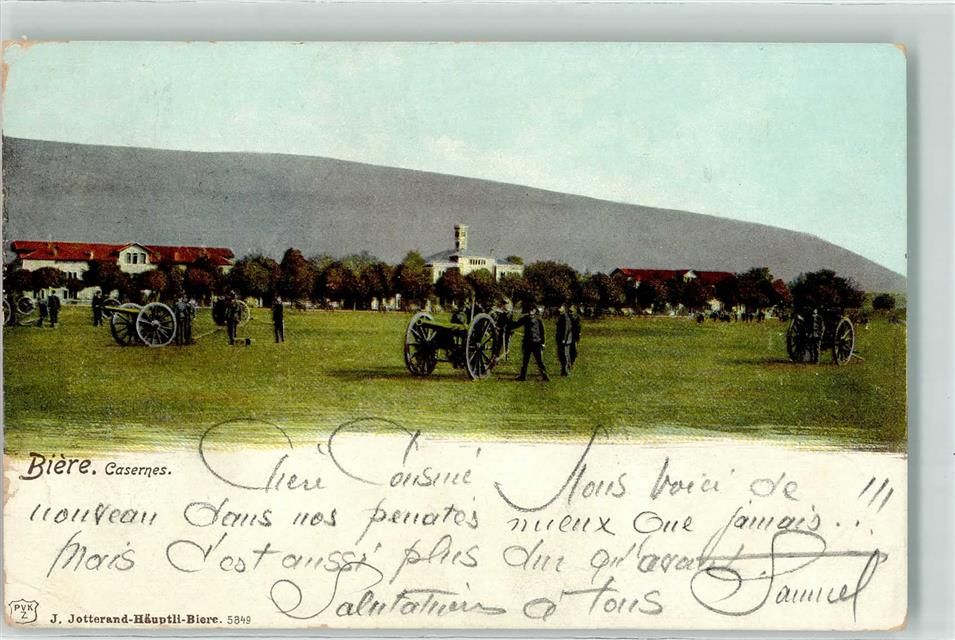 Bière. Casernes.
Chère Cousine Nous voici de
nouveau dans nos penates mieux que jamais...!!!
Mais c'est aussi plus dur qu'avant
Salutations à tous Samuel
PVK Z
J. Jotterand-Häuptli-Biere. 5849